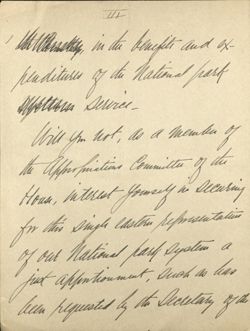 III
in the benefits and ex-
penditures of the National park
Service—
Will you not, as a member of
the Appropriations Committee of the
House, interest yourself in securing
for this single eastern representative
of our National park system a
just apportionment, such as has
been requested by the Secretary of the